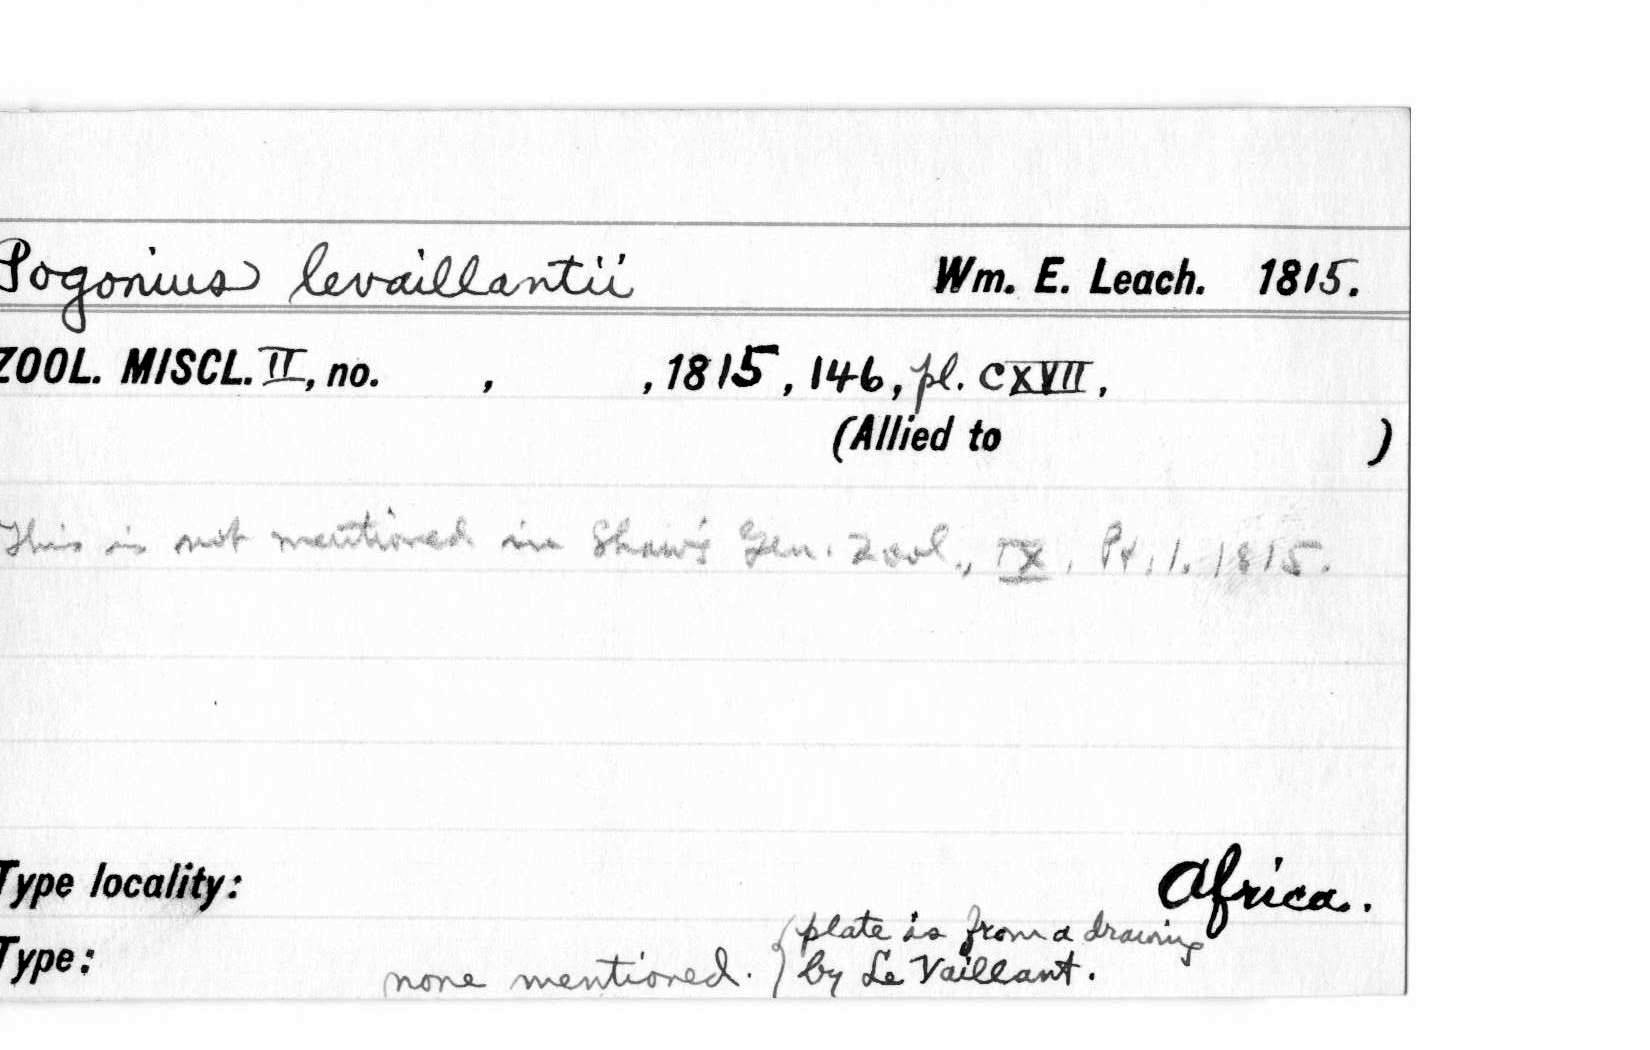 Pogonius levaillantii Wm. E. Leach. 1815.
ZOOL. MISCL. II, no. , , 1815, 146, pl. CXVII,
(Allied to )
This is not mentioned in Shaw's Gen. Zool., IX, Pt. 1. 1815.
Type locality: Africa.
Type: none mentioned. { plate is from a drawing
by Le Vaillant.